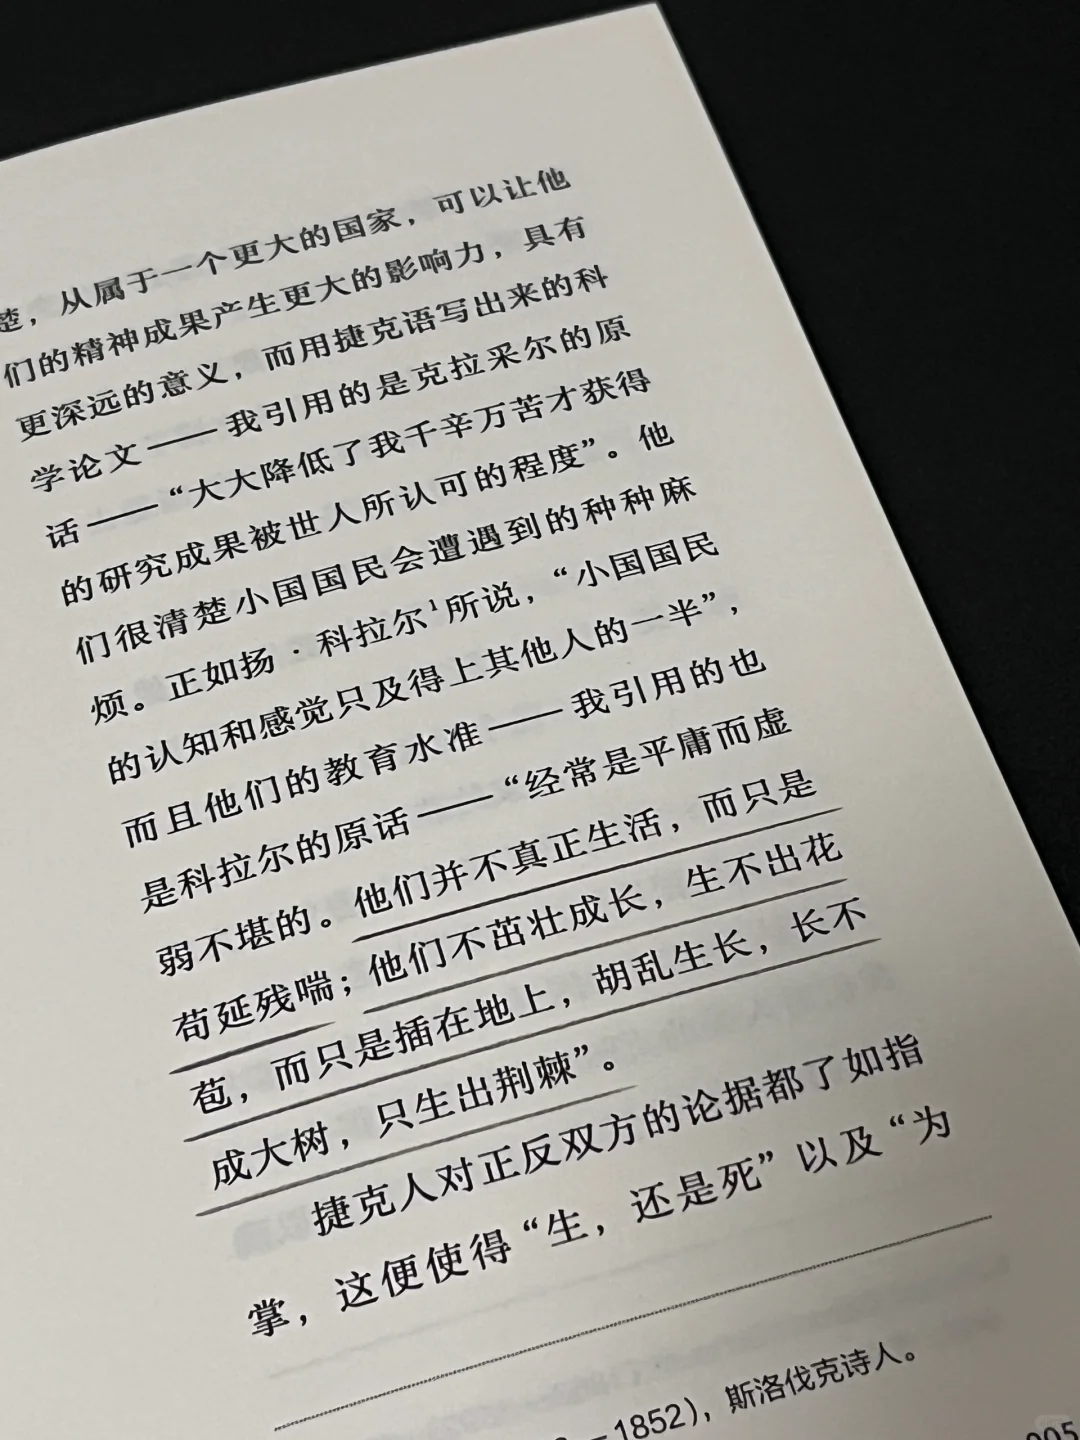 楚，从属于一个更大的国家，可以让他
们的精神成果产生更大的影响力，具有
更深远的意义，而用捷克语写出来的科
学论文——我引用的是克拉采尔的原
话——“大大降低了我千辛万苦才获得
的研究成果被世人所认可的程度”。他
们很清楚小国国民会遭遇到的种种麻
烦。正如扬·科拉尔¹所说，“小国国民
的认知和感觉只及得上其他人的一半”，
而且他们的教育水准——我引用的也
是科拉尔的原话——“经常是平庸而虚
弱不堪的。他们并不真正生活，而只是
苟延残喘；他们不茁壮成长，生不出花
苞，而只是插在地上，胡乱生长，长不
成大树，只生出荆棘”。
捷克人对正反双方的论据都了如指
掌，这便使得“生，还是死”以及“为
—1852)，斯洛伐克诗人。
005